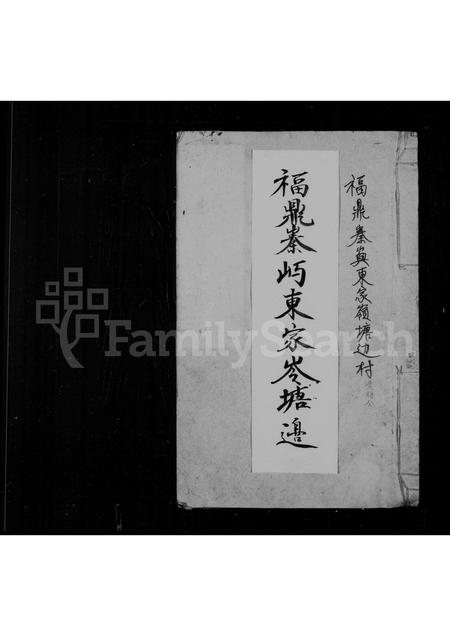 福鼎 秦㠘東家嶺塘边村
福鼎秦屿東家岑塘邊
FamilySearch